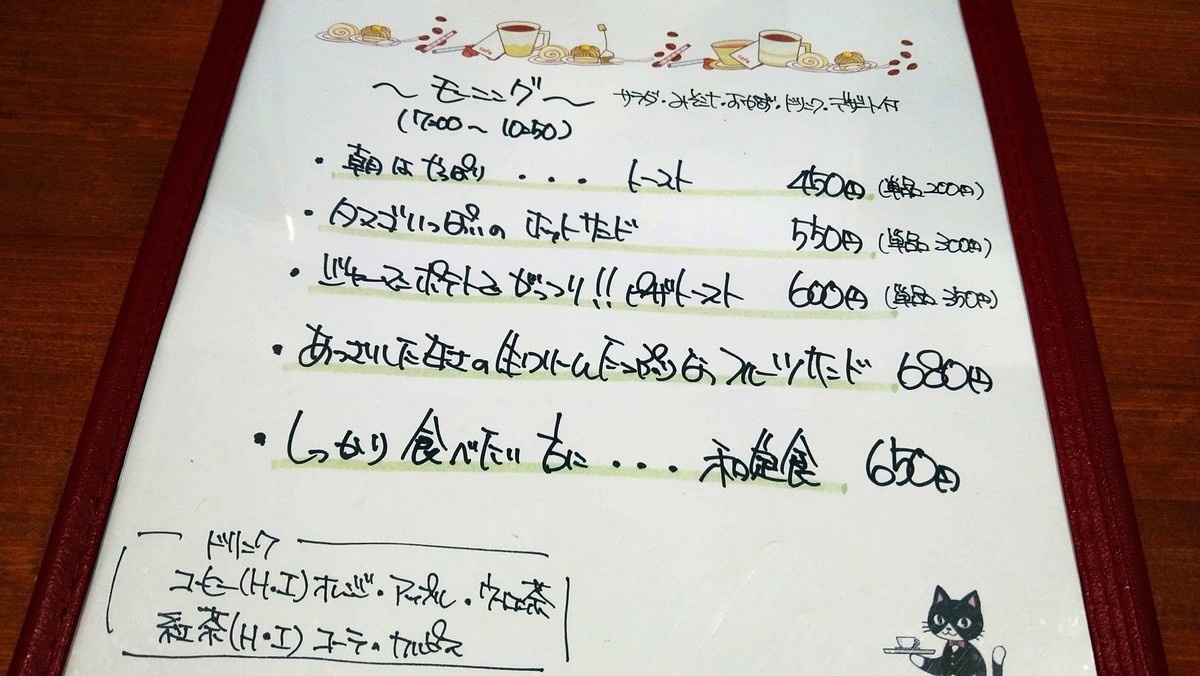 〜モーニング〜 サラダ・みそ汁・おかず・ドリンク・デザート付
(7:00〜10:50)
・朝はやっぱり・・・トースト 450円(単品200円)
・タマゴいっぱいのホットサンド 550円(単品300円)
・ジャーマンポテトでがっつり!!ピザトースト 600円(単品350円)
・あっさりした甘さの生クリームたっぷりなフルーツサンド 680円
・しっかり食べたい方に・・・和定食 650円
ドリンク
コーヒー(H・I)オレンジ・アップル・ウーロン茶
紅茶(H・I)コーラ・カルピス